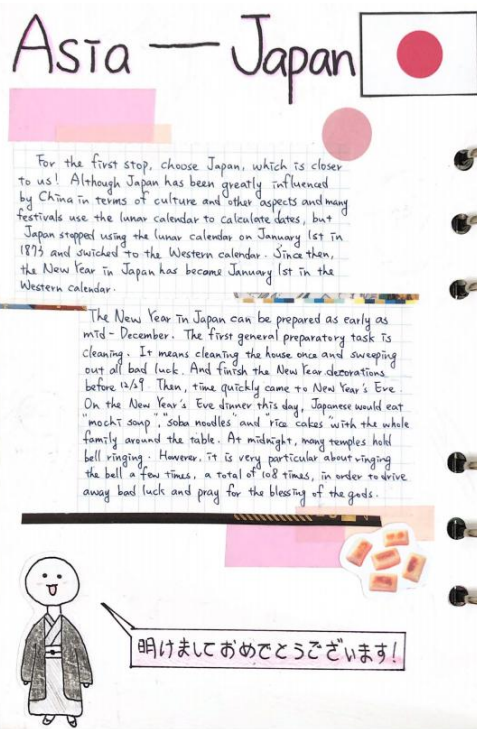 Asia — Japan
For the first stop, choose Japan, which is closer
to us! Although Japan has been greatly influenced
by China in terms of culture and other aspects and many
festivals use the lunar calendar to calculate dates, but
Japan stopped using the lunar calendar on January 1st in
1873 and swiched to the Western calendar. Since then,
the New Year in Japan has become January 1st in the
Western calendar.
The New Year in Japan can be prepared as early as
mid-December. The first general preparatory task is
cleaning. It means cleaning the house once and sweeping
out all bad luck. And finish the New Year decorations
before 12/29. Then, time quickly came to New Year's Eve.
On the New Year's Eve dinner this day, Japanese would eat
"mochi soup", "soba noodles" and "rice cakes" with the whole
family around the table. At midnight, many temples hold
bell ringing. However, it is very particular about ringing
the bell a few times, a total of 108 times, in order to drive
away bad luck and pray for the blessing of the gods.
明けましておめでとうございます!